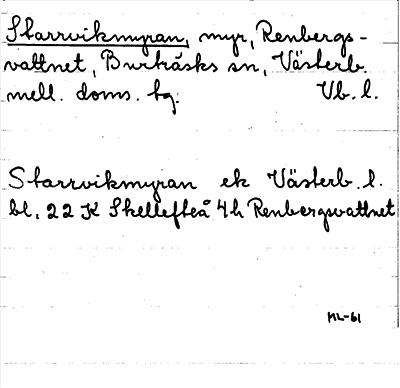 Starrvikmyran, myr, Renbergs-
vattnet, Burträsks sn, Västerb.
mell. doms. tg. Vb. l.
Starrvikmyran ek Västerb. l.
bl. 22 K Skellefteå 4 h Renbergsvattnet
ML-61